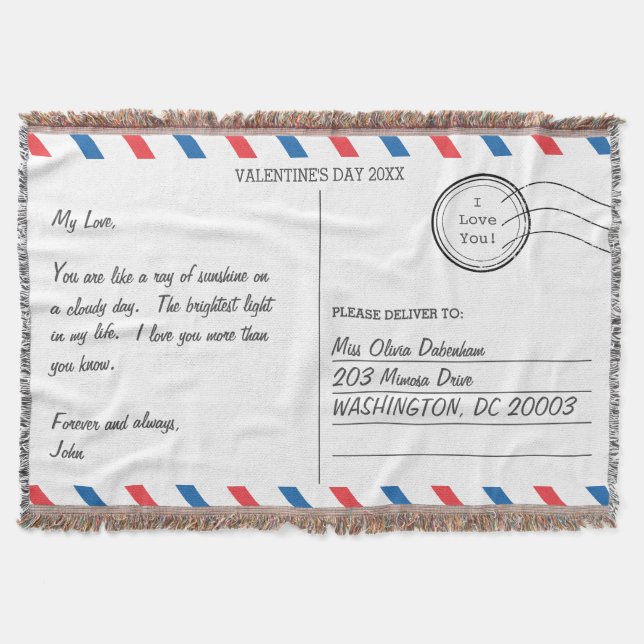 VALENTINE'S DAY 20XX
My Love,
You are like a ray of sunshine on
a cloudy day. The brightest light
in my life. I love you more than
you know.
Forever and always,
John
I
Love
You!
PLEASE DELIVER TO:
Miss Olivia Dabenham
203 Mimosa Drive
WASHINGTON, DC 20003